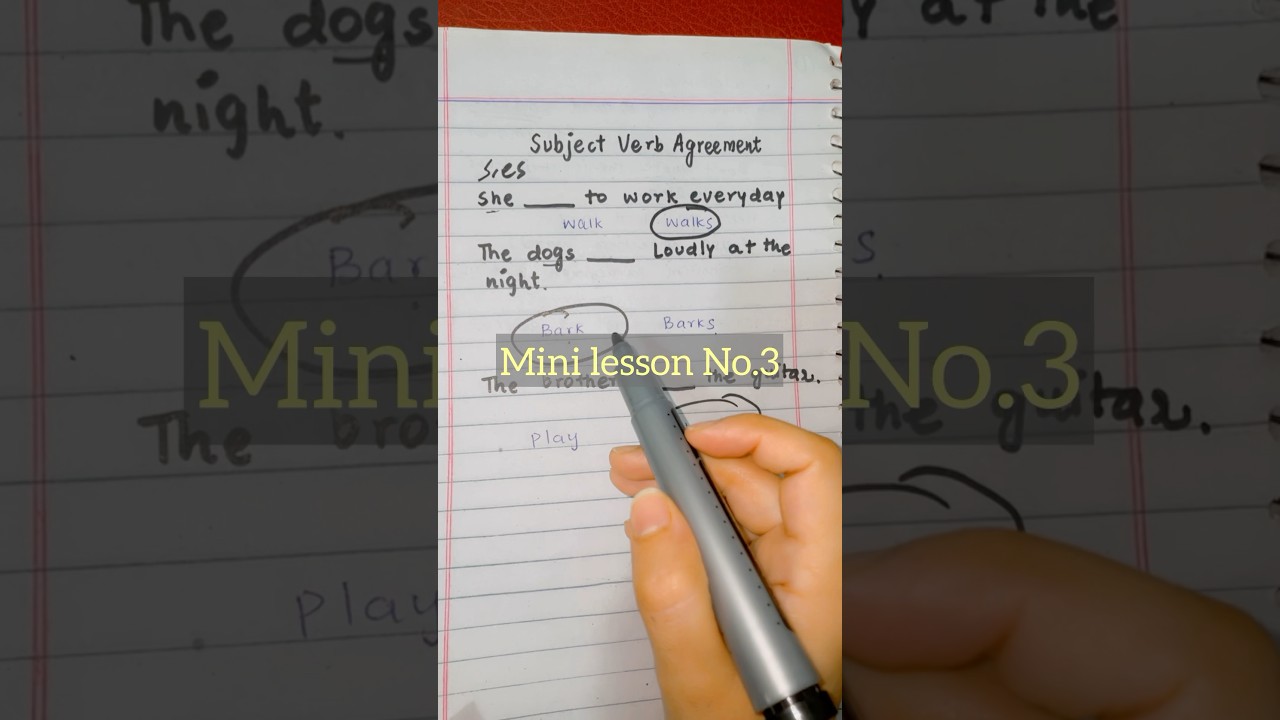 Subject Verb Agreement
s,es
she ____ to work everyday
walk walks
The dogs ____ Loudly at the
night.
Bark Barks
Mini lesson No.3
The brother ____ the guitar.
play